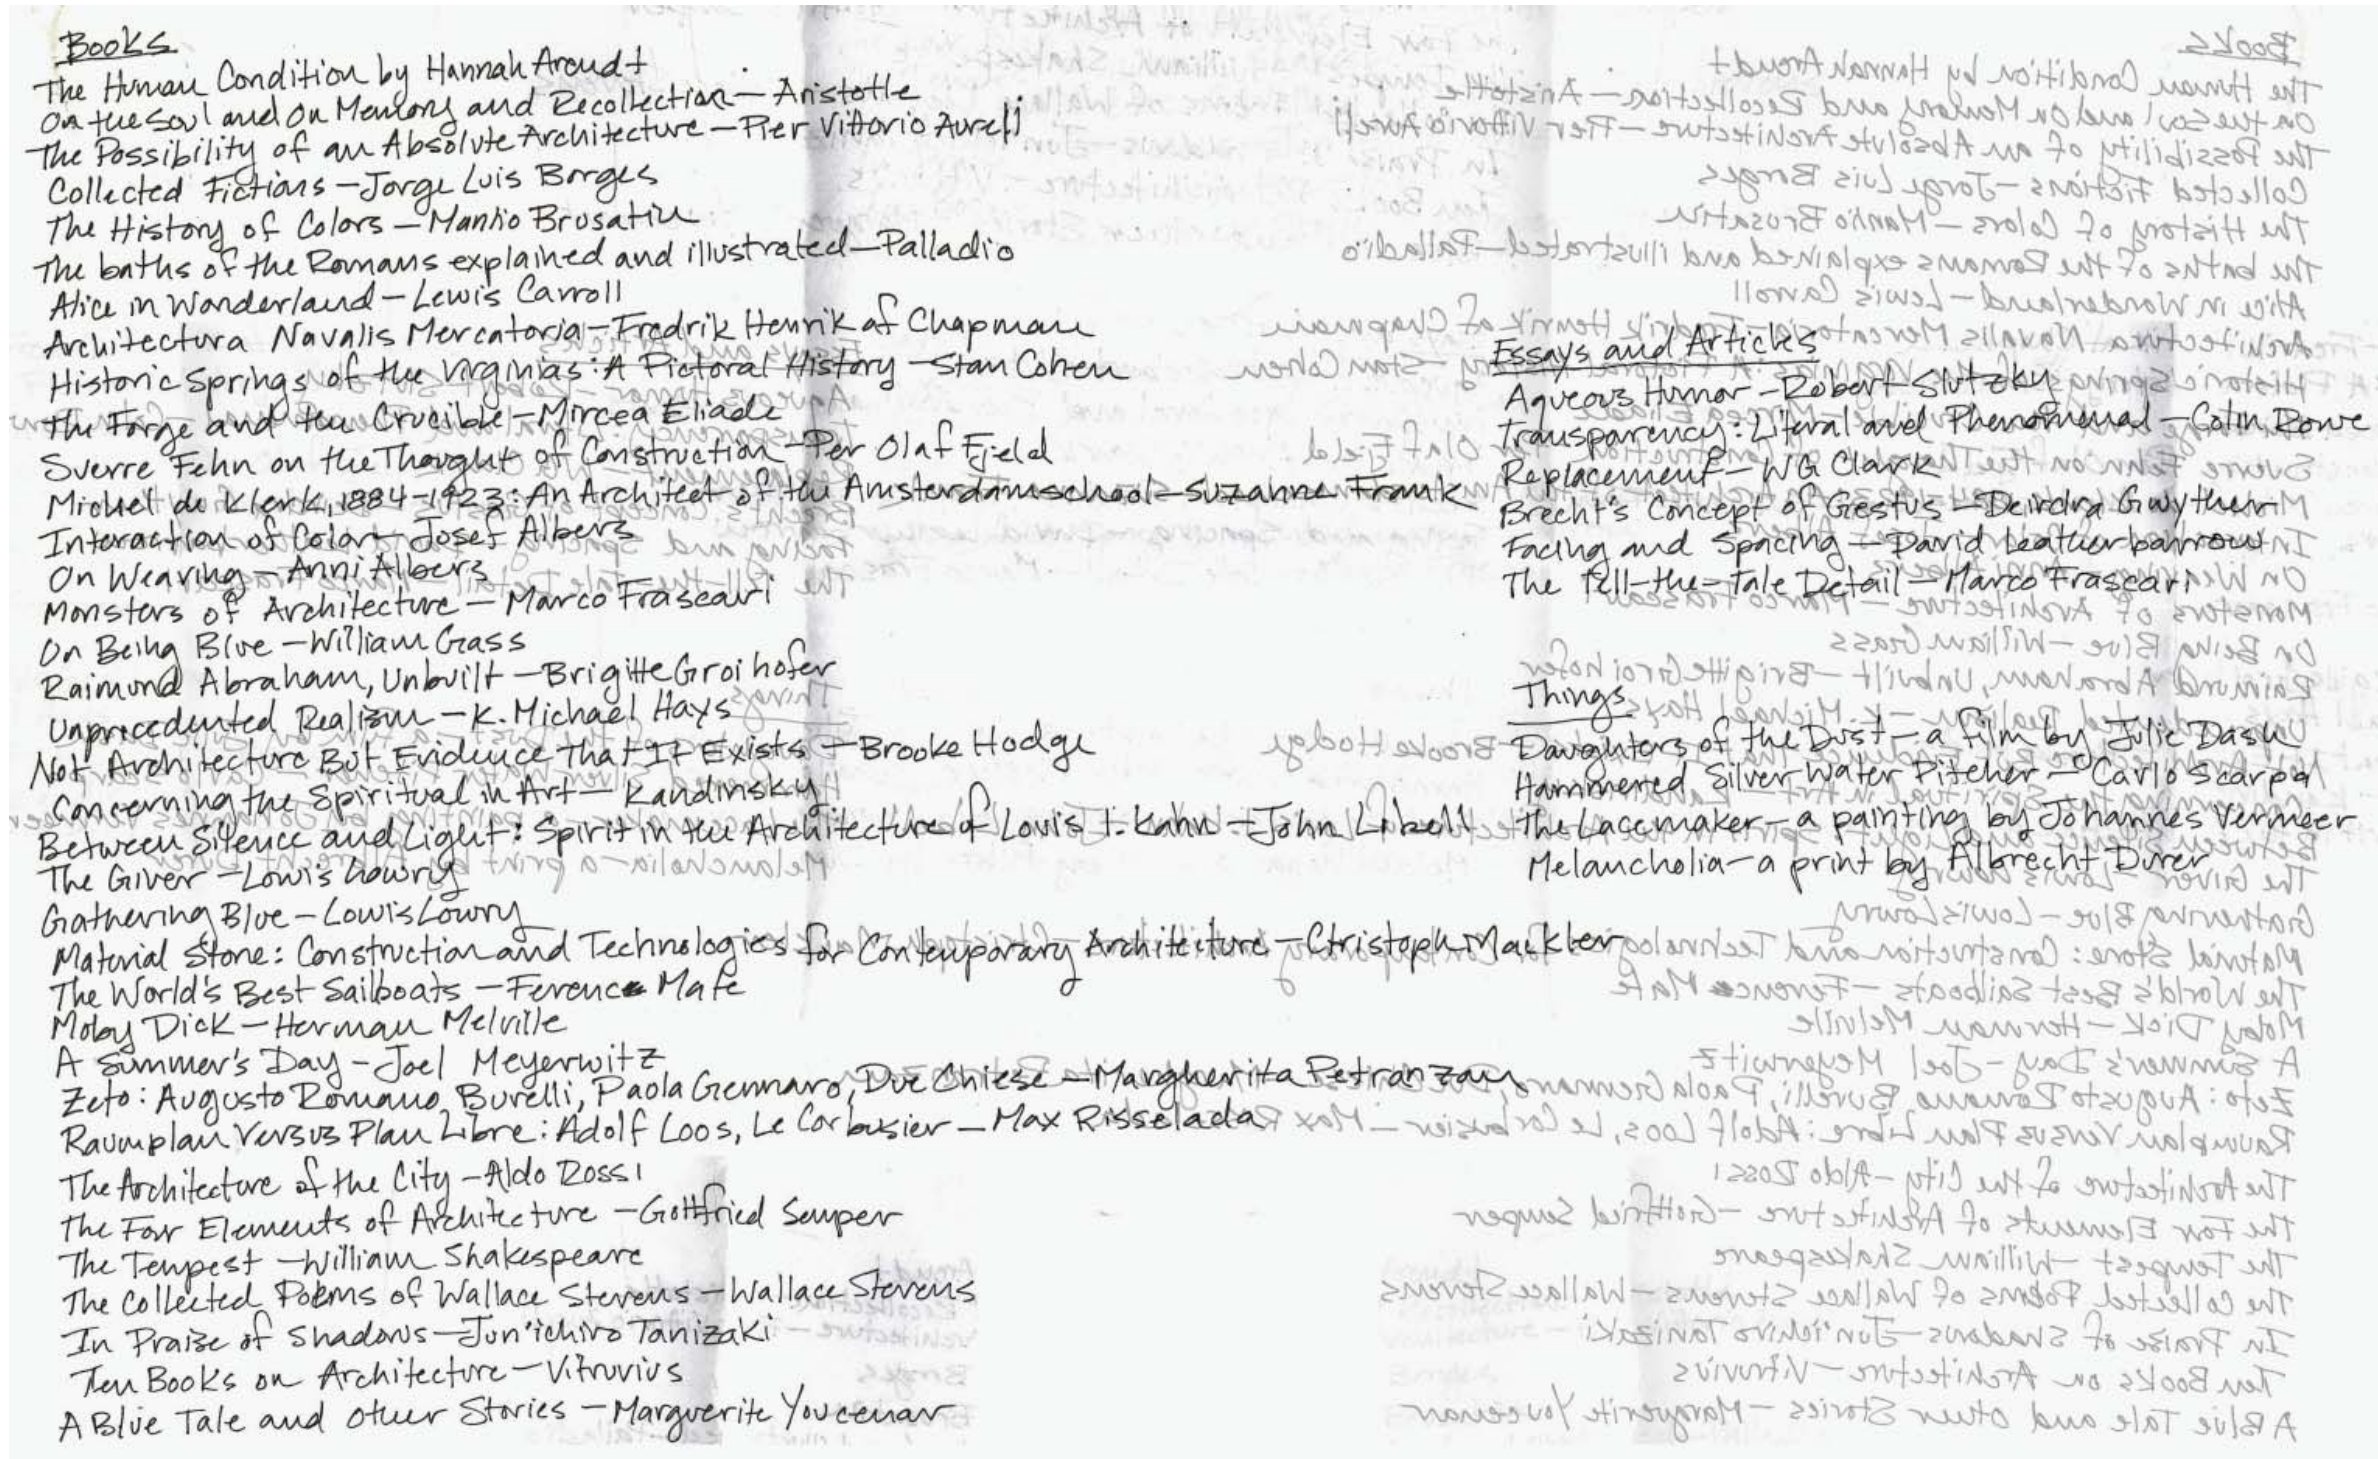 Books
The Human Condition by Hannah Arendt
On the Soul and On Memory and Recollection — Aristotle
The Possibility of an Absolute Architecture — Pier Vittorio Aureli
Collected Fictions — Jorge Luis Borges
The History of Colors — Manlio Brusatin
The baths of the Romans explained and illustrated — Palladio
Alice in Wonderland — Lewis Carroll
Architectura Navalis Mercatoria — Fredrik Henrik af Chapman
Historic Springs of the Virginias: A Pictoral History — Stan Cohen
The Forge and the Crucible — Mircea Eliade
Sverre Fehn on the Thought of Construction — Per Olaf Fjeld
Michel de Klerk, 1884-1923: An Architect of the Amsterdamschool — Suzanne Frank
Interaction of Color — Josef Albers
On Weaving — Anni Albers
Monsters of Architecture — Marco Frascari
On Being Blue — William Gass
Raimund Abraham, Unbuilt — Brigitte Groihofer
Unprecedented Realism — K. Michael Hays
Not Architecture But Evidence That It Exists — Brooke Hodge
Concerning the Spiritual in Art — Kandinsky
Between Silence and Light: Spirit in the Architecture of Louis I. Kahn — John Lobell
The Giver — Lowis Lowry
Gathering Blue — Lowis Lowry
Material Stone: Construction and Technologies for Contemporary Architecture — Christoph Mackler
The World's Best Sailboats — Ferenc Mate
Moby Dick — Herman Melville
A Summer's Day — Joel Meyerwitz
Zeto: Augusto Romano Burelli, Paola Gennaro, Due Chiese — Margherita Petranzan
Raumplan Versus Plan Libre: Adolf Loos, Le Corbusier — Max Risselada
The Architecture of the City — Aldo Rossi
The Four Elements of Architecture — Gottfried Semper
The Tempest — William Shakespeare
The Collected Poems of Wallace Stevens — Wallace Stevens
In Praise of Shadows — Jun'ichiro Tanizaki
Ten Books on Architecture — Vitruvius
A Blue Tale and Other Stories — Marguerite Youcenar
Essays and Articles
Aqueous Humor — Robert Slutzky
Transparency: Literal and Phenomenal — Colin Rowe
Replacement — WG Clark
Brecht's Concept of Gestus — Deirdra Gwyther
Facing and Spacing — David Leatherbarrow
The Tell-the-Tale Detail — Marco Frascari
Things
Daughters of the Dust — a film by Julie Dash
Hammered Silver Water Pitcher — Carlo Scarpa
The Lacemaker — a painting by Johannes Vermeer
Melancholia — a print by Albrecht Durer